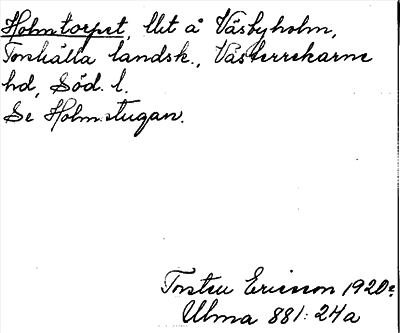 Holmtorpet, llit å Väsbyholm,
Torshälla landsk., Västerrekarne
hd, Söd. l.
Se Holmstugan.
Torsten Ericsson 1920
Ulma 881:24a